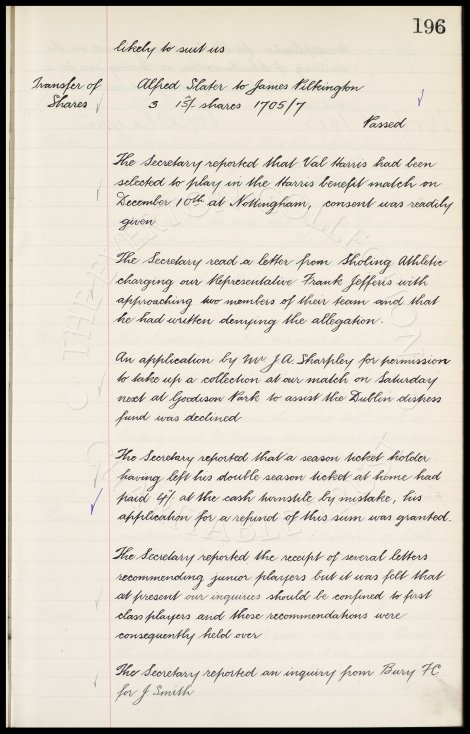 196
likely to suit us
Transfer of Shares
Alfred Slater to James Pilkington
3 1st shares 1705/7
Passed
The Secretary reported that Val Harris had been
selected to play in the Harris benefit match on
December 10th at Nottingham, consent was readily
given
The Secretary read a letter from Sholing Athletic
charging our Representative Frank Jefferis with
approaching two members of their team and that
he had written denying the allegation.
An application by Mr J A. Sharpley for permission
to take up a collection at our match on Saturday
next at Goodison Park to assist the Dublin distress
fund was declined
The Secretary reported that a season ticket holder
having left his double season ticket at home had
paid 4/- at the cash turnstile by mistake, his
application for a refund of this sum was granted.
The Secretary reported the receipt of several letters
recommending junior players but it was felt that
at present our inquiries should be confined to first
class players and these recommendations were
consequently held over
The Secretary reported an inquiry from Bury FC
for J Smith